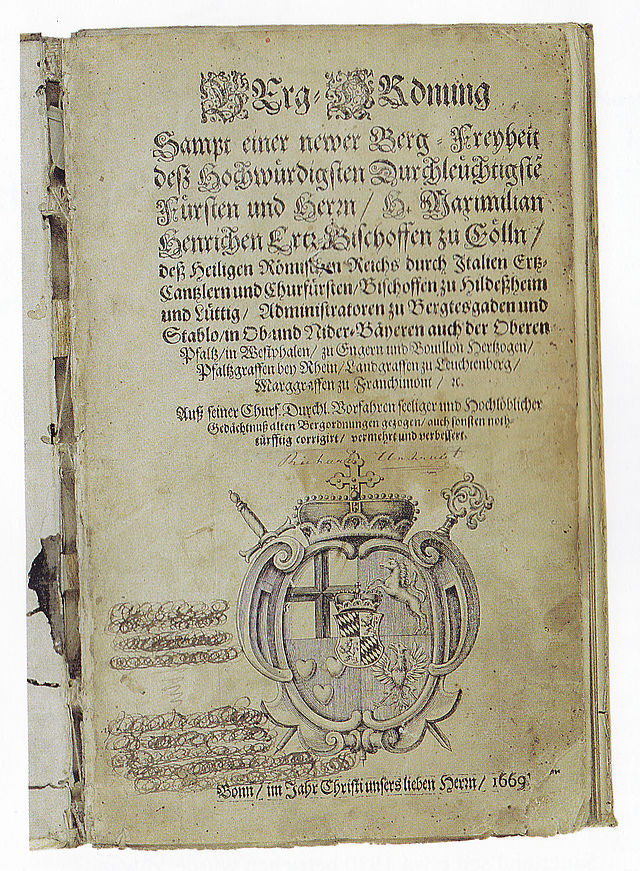 BErg-ORdnung
Sampt einer newer Berg-Freyheit
deß Hochwürdigsten Durchleüchtigstē
Fürsten und Herrn / H. Maximilian
Henrichen Ertz-Bischoffen zu Cölln /
deß Heiligen Römischen Reichs durch Italien Ertz-
Cantzlern und Churfürsten / Bischoffen zu Hildeßheim
und Lüttig / Administratoren zu Bergtesgaden und
Stablo / in Ob-und Nider-Bäyeren auch der Oberen
Pfaltz / in Westphalen / zu Engern und Bouillon Hertzogen /
Pfaltzgraffen bey Rhein / Landgraffen zu Leuchtenberg /
Marggraffen zu Franchimont / ꝛc.
Auß seiner Churf. Durchl. Vorfahren seeliger und Hochlöblicher
Gedächtnuß alten Bergordnungen gezogen / auch sonsten noth-
türfftig corrigirt / vermehrt und verbessert.
Bonn / im Jahr Christi unsers lieben Herrn / 1669